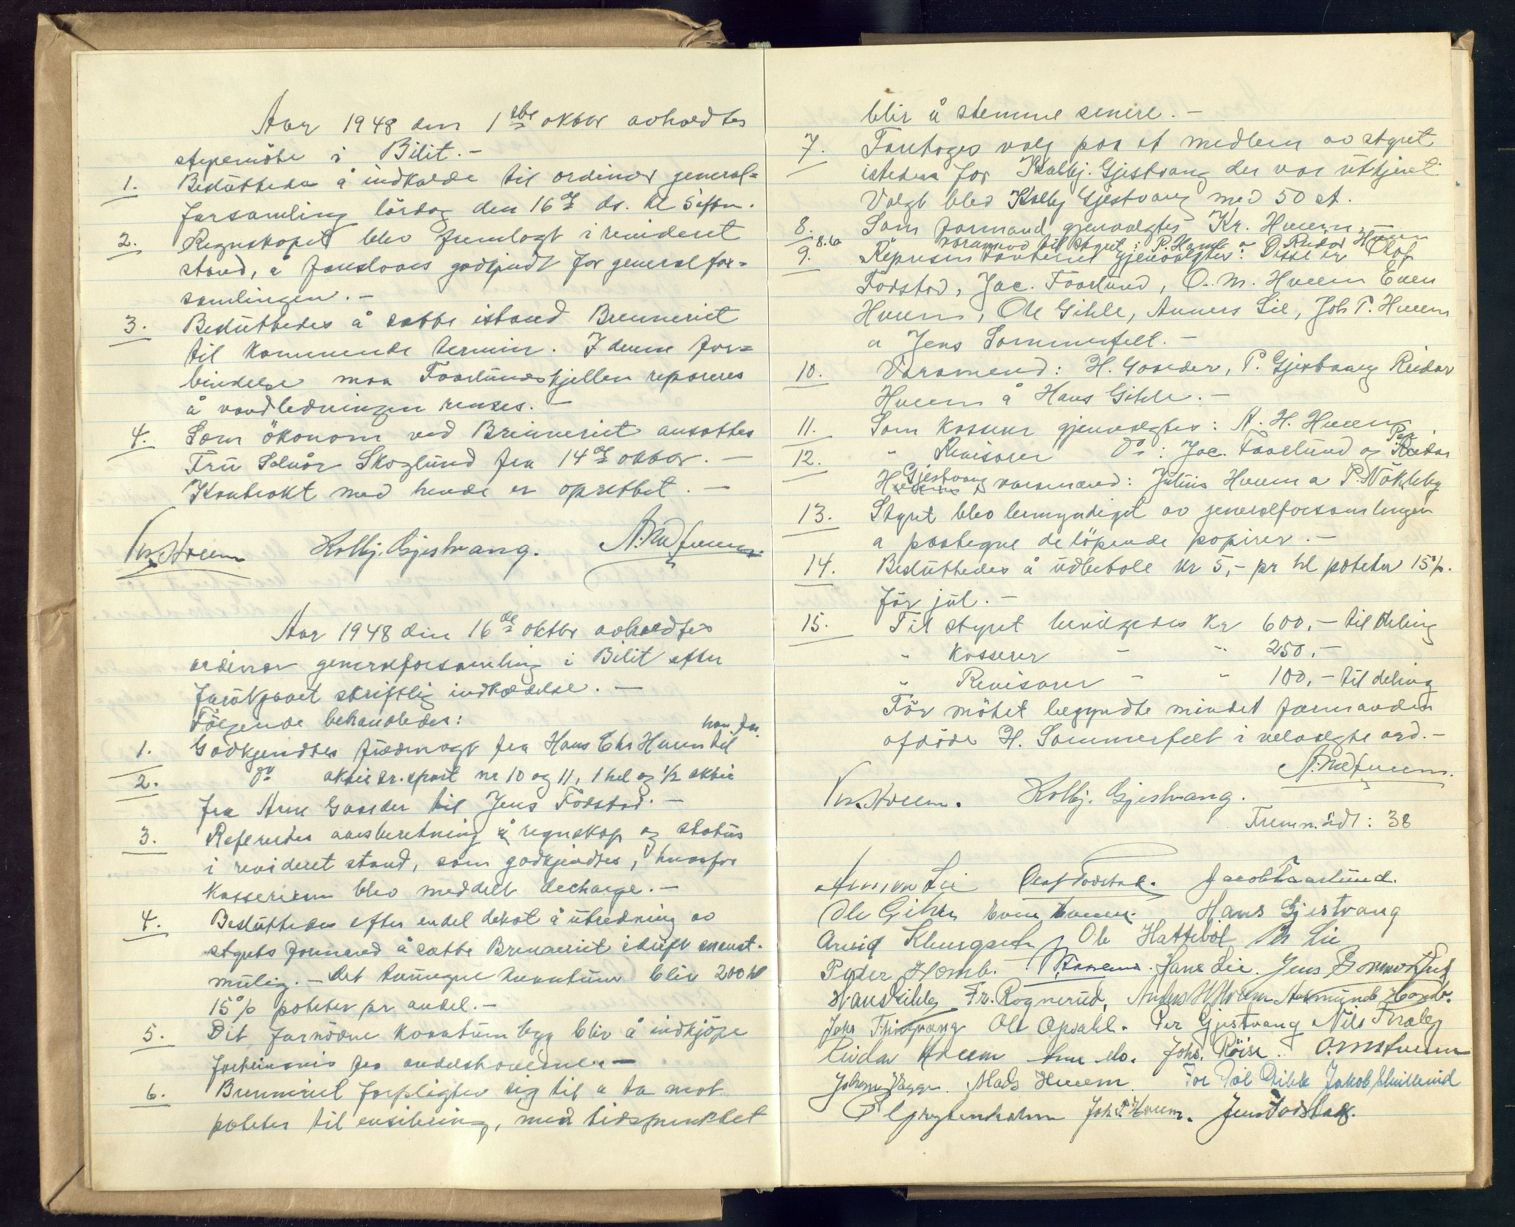 Aar 1948 den 1ste oktbr avholdtes
styremöte i Bilit.-
1. Besluttedes å indkalde til ordinær general=
forsamling lördag den 16de ds. kl 5 eftm.
2. Regnskapet blev fremlagt i revideret
stand, a fandtoves godkjendt for generalfor=
samlingen.-
3. Besluttedes å sætte istand Brenneriet
til kommende termin. I denne for=
bindelse maa Faarlundskjellen repareres
å vandledningen renses.-
4. Som ökonom ved Brenneriet ansattes
Fru Solvår Skoglund fra 14de oktbr.-
Kontrakt med hende er oprettet.-
Kr. Hveem Kolbj. Gjestvang. A. H. Hveem
Aar 1948 den 16de oktbr avholdtes
ordinær generalforsamling i Bilit efter
forutgaaet skriftlig indkaldelse.-
Fölgende behandledes:
1. Godkjendtes fuldmagt fra Hans Chr Hveem til
2. do aktietransport nr 10 og 11, 1 hel og 1/2 aktie
fra Arne Gaarder til Jens Fodstad.-
3. Refereredes aarsberetning å regnskap og status
i revideret stand, som godkjendtes, hvorfor
Kassereren blev meddelt decharge.-
4. Besluttedes efter endel debat å utredning av
styrets formand å sætte Brenneriet i drift snarest
mulig.- det kvantum blir 200 hl
15% poteter pr andel.-
5. Det fornödne kvantum byg blir å indkjöpe
fortrinsvis fra andelshaverne.-
6. Brenneriet forpligter sig til a ta mot
poteter til ensilering, med tidspunktet
blir å stemme senere.-
7. Foretoges valg paa et medlem av styret
istedenfor Kolbj. Gjestvang der var uttjent
Valgt blev Kolbj Gjestvang med 50 st.
8. Som formand gjenvalgtes Kr. Hveem
8.b varamend til styret: P. Homb a Reidar Hveem
9. Representantenes gjenvalgtes: Disse er Olaf
Fodstad, Jac. Faarlund, O. M. Hveem Even
Hveem, Ole Gihle, Anners Lie, Joh P. Hveem
a Jens Sommerfelt.-
10. Varamend: H. Gaarder, P. Gjestvang Reidar
Hveem å Hans Gihle.-
11. Som Kasserer gjenvalgtes: A. H. Hveem
12. " Revisorer do: Jac. Faarlund og Per
Gjestvang varamænd: Julius Hveem a P. Nökleby
13. Styret blev bemyndiget av generalforsamlingen
a paategne de löpende papirer.-
14. Besluttedes å utbetale kr 5,- pr hl poteter 15%.
för jul.-
15. Til styret bevilgedes kr 600,- til deling
" Kasserer - " 250,-
" Revisorer - " 100,- til deling
För mötet begyndte mindet formanden
afdöde H. Sommerfelt i velvalgte ord.-
A. H. Hveem.
Kr. Hveem. Kolbj. Gjestvang.
Fremmödt: 38
Anners Lie Olaf Fodstad. Jacob Faarlund.
Ole Gihle Even Hveem. Hans Gjestvang
Arvid Ole Hattebøl Lie
Peder Homb. Hans Lie. Jens Sommerfelt
Hans Gihle Fr. Rognerud. Hveem Asmund Homb.
Johs Gjestvang Ole Opsahl. Per Gjestvang Nils
Reidar Hveem Arne Mo. Johs. Röise. O. M. Hveem
Mads Hveem For Gihle Jakob
Joh. P. Hveem. Jens Fodstad.